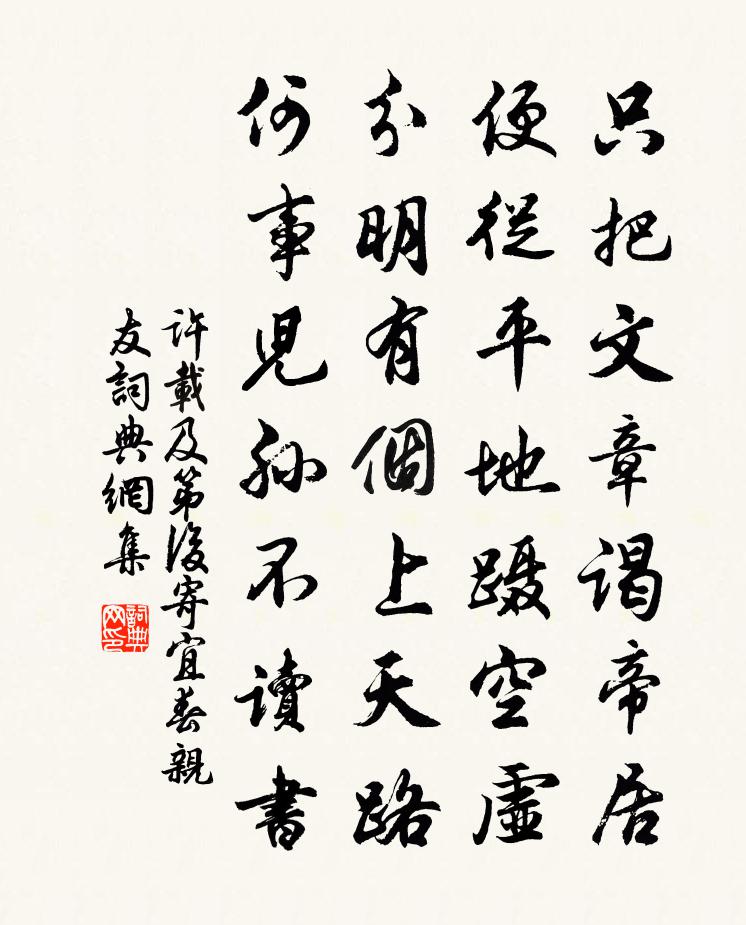 只把文章谒帝居
便從平地蹑空虛
分明有個上天路
何事兒孫不讀書
許載及第後寄宜春親
友詞典網集
詞典
网印